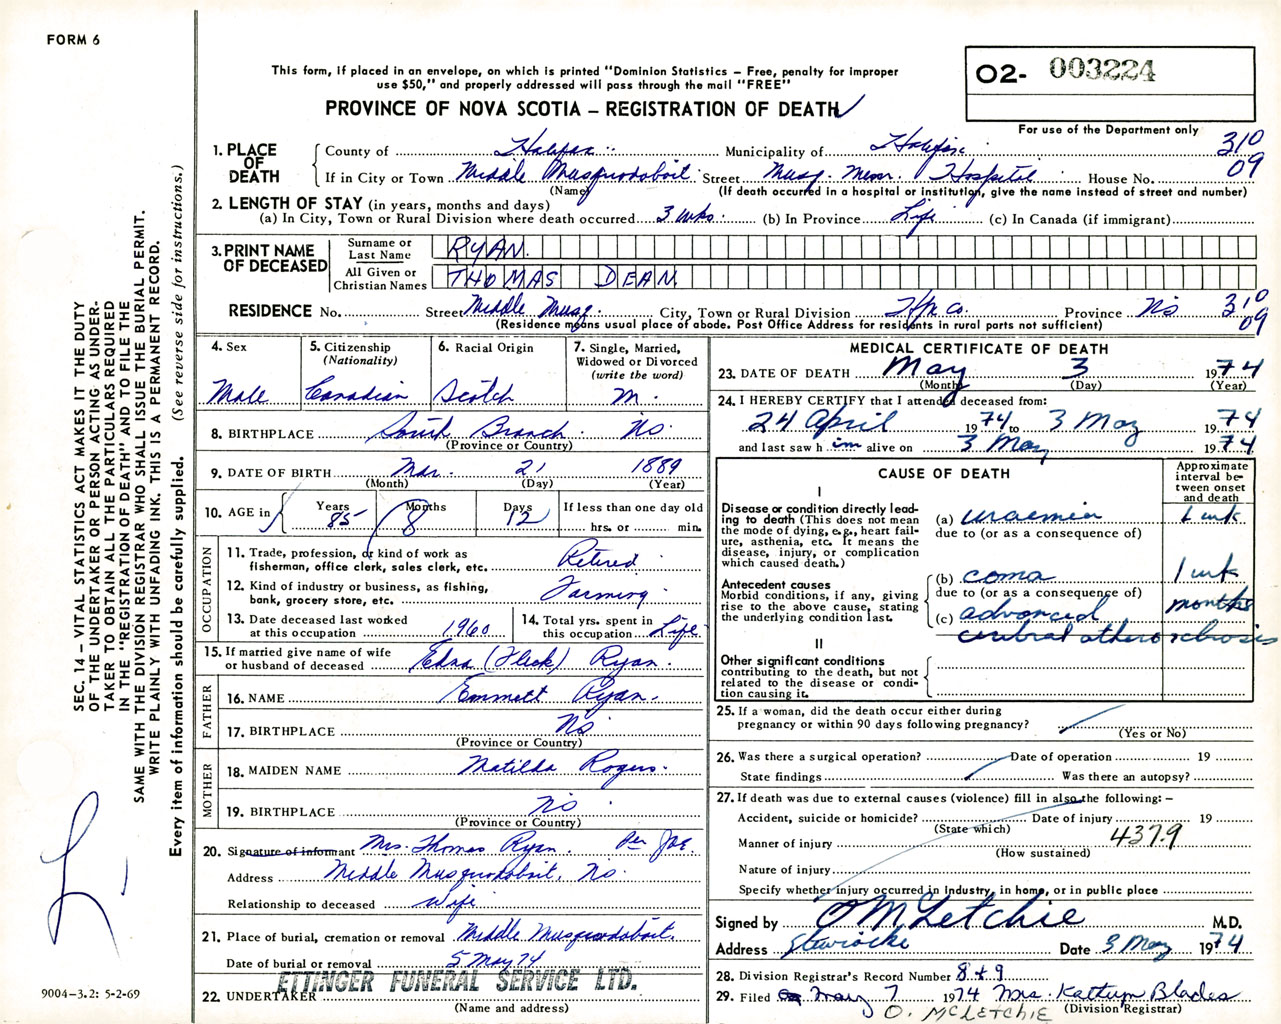 FORM 6
This form, if placed in an envelope, on which is printed "Dominion Statistics – Free, penalty for improper
use $50," and properly addressed will pass through the mail "FREE"
PROVINCE OF NOVA SCOTIA – REGISTRATION OF DEATH
O2- 003224
For use of the Department only
310
09
1. PLACE OF DEATH
County of Halifax Municipality of Halifax
If in City or Town Middle Musquodoboit Street Musq. Mem. Hospital House No.
(Name) (If death occurred in a hospital or institution, give the name instead of street and number)
2. LENGTH OF STAY (in years, months and days)
(a) In City, Town or Rural Division where death occurred 3 wks. (b) In Province Life (c) In Canada (if immigrant)
3. PRINT NAME OF DECEASED
Surname or Last Name RYAN.
All Given or Christian Names THOMAS DEAN
RESIDENCE No. Street Middle Musq. City, Town or Rural Division Hfx Co. Province NS 310
09
(Residence means usual place of abode. Post Office Address for residents in rural parts not sufficient)
4. Sex
Male
5. Citizenship
(Nationality)
Canadian
6. Racial Origin
Scotch
7. Single, Married,
Widowed or Divorced
(write the word)
M.
8. BIRTHPLACE South Branch NS.
(Province or Country)
9. DATE OF BIRTH Mar. 21 1889
(Month) (Day) (Year)
10. AGE in Years 85 Months 8 Days 12 If less than one day old
hrs. or min.
OCCUPATION
11. Trade, profession, or kind of work as
fisherman, office clerk, sales clerk, etc. Retired
12. Kind of industry or business, as fishing,
bank, grocery store, etc. Farming
13. Date deceased last worked
at this occupation 1960
14. Total yrs. spent in
this occupation Life
15. If married give name of wife
or husband of deceased Edna (Fleck) Ryan.
FATHER
16. NAME Emmett Ryan.
17. BIRTHPLACE NS
(Province or Country)
MOTHER
18. MAIDEN NAME Matilda Rogers.
19. BIRTHPLACE NS.
(Province or Country)
20. Signature of informant Mrs. Thomas Ryan. Per JOE.
Address Middle Musquodoboit, NS.
Relationship to deceased Wife
21. Place of burial, cremation or removal Middle Musquodoboit.
Date of burial or removal 5 May 74
22. UNDERTAKER ETTINGER FUNERAL SERVICE LTD.
(Name and address)
MEDICAL CERTIFICATE OF DEATH
23. DATE OF DEATH May 3 1974
(Month) (Day) (Year)
24. I HEREBY CERTIFY that I attended deceased from:
24 April 1974 to 3 May 1974
and last saw h im alive on 3 May 1974
CAUSE OF DEATH
Approximate
interval be-
tween onset
and death
I
Disease or condition directly lead-
ing to death (This does not mean
the mode of dying, e.g., heart fail-
ure, asthenia, etc. It means the
disease, injury, or complication
which caused death.)
(a) uraemia 1 wk
due to (or as a consequence of)
Antecedent causes
Morbid conditions, if any, giving
rise to the above cause, stating
the underlying condition last.
(b) coma 1 wk
due to (or as a consequence of)
(c) advanced months
II
Other significant conditions
contributing to the death, but not
related to the disease or condi-
tion causing it.
25. If a woman, did the death occur either during
pregnancy or within 90 days following pregnancy?
(Yes or No)
26. Was there a surgical operation? Date of operation 19
State findings Was there an autopsy?
27. If death was due to external causes (violence) fill in also the following: –
Accident, suicide or homicide? Date of injury 19
(State which) 437.9
Manner of injury
(How sustained)
Nature of injury
Specify whether injury occurred in Industry, in home, or in public place
Signed by O McLetchie M.D.
Address Date 3 May 1974
28. Division Registrar's Record Number 8 + 9
29. Filed May 7 1974 Mrs. Kathryn Blades
O. McLETCHIE (Division Registrar)
SEC. 14 – VITAL STATISTICS ACT MAKES IT THE DUTY
OF THE UNDERTAKER OR PERSON ACTING AS UNDER-
TAKER TO OBTAIN ALL THE PARTICULARS REQUIRED
IN THE "REGISTRATION OF DEATH" AND TO FILE THE
SAME WITH THE DIVISION REGISTRAR WHO SHALL ISSUE THE BURIAL PERMIT.
WRITE PLAINLY WITH UNFADING INK. THIS IS A PERMANENT RECORD.
Every item of information should be carefully supplied. (See reverse side for instructions.)
9004–3.2: 5-2-69